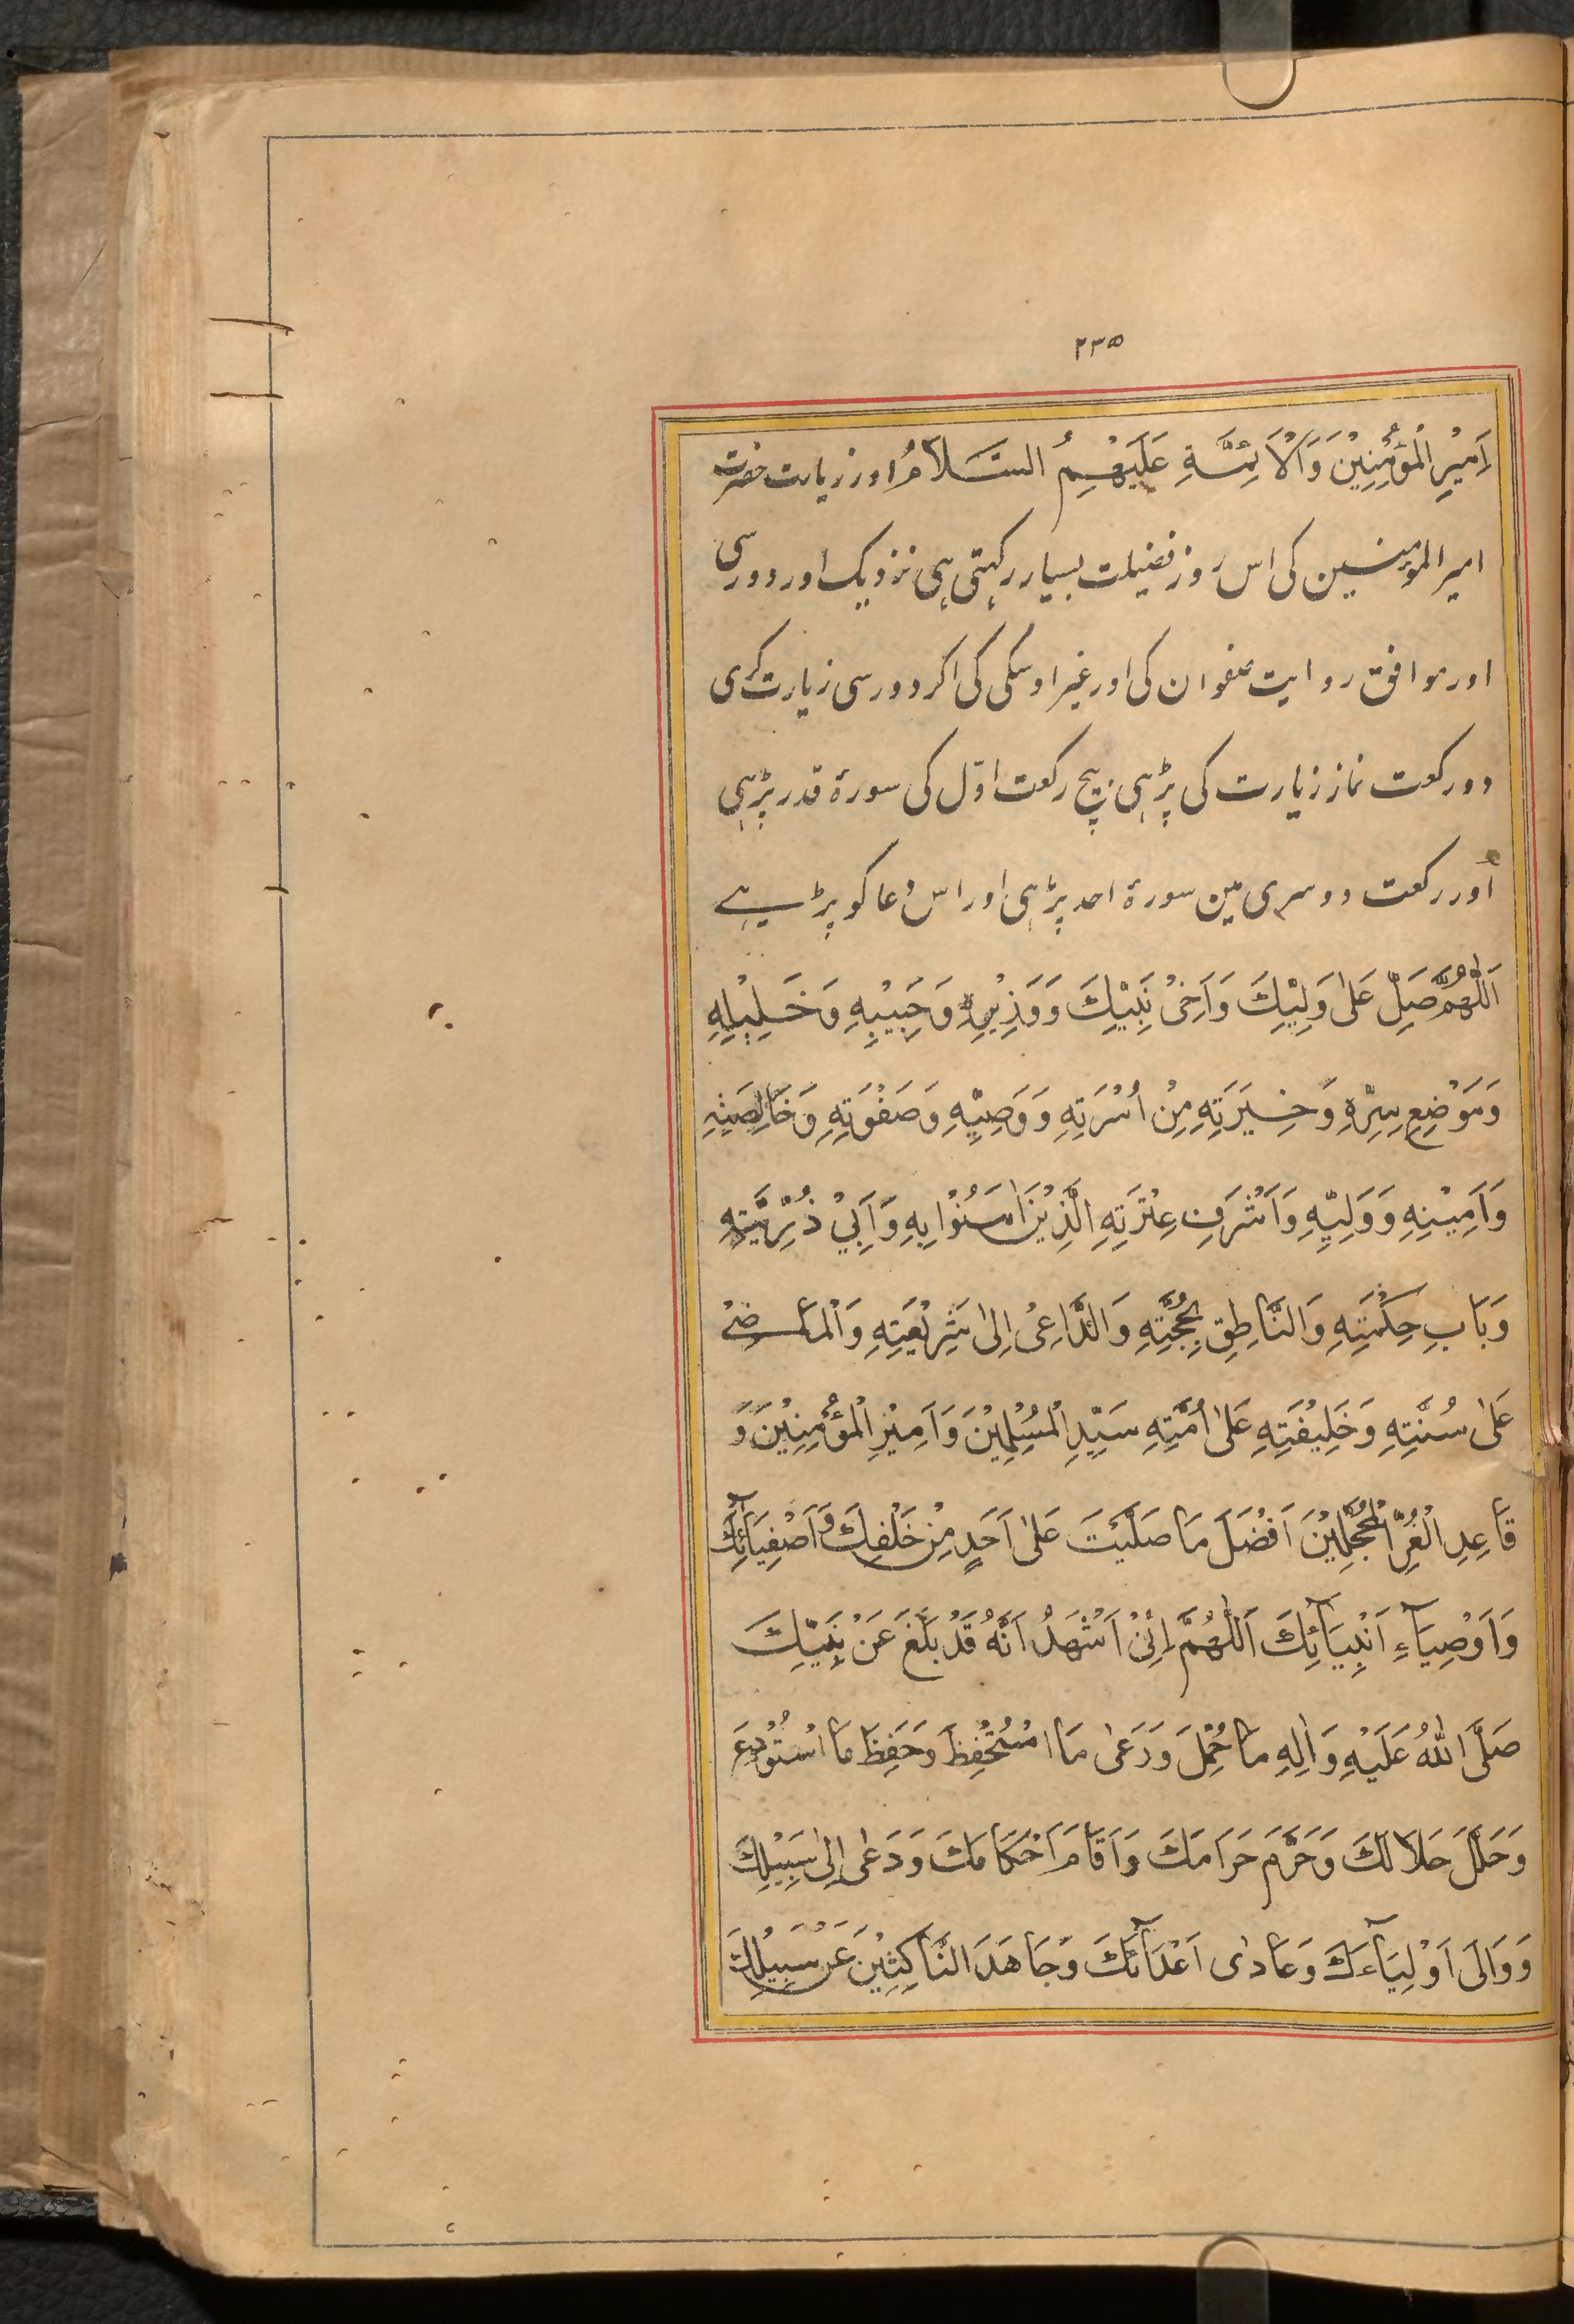 ۲۳۵
اَمِیْرِ الْمُؤْمِنِیْنَ وَالْاَئِمَّةِ عَلَیْهِمُ السَّلَامُ اور زیارت حضرت
امیر المؤمنین کی اس روز فضیلت بسیار رکہتی ہی نزدیک اور دور سی
اور موافق روایت صفوان کی اور غیر اوسکی کی اکر دور سی زیارت کری
دو رکعت نماز زیارت کی پڑہی بیچ رکعت اوّل کی سورۂ قدر پڑہی
اور رکعت دوسری مین سورۂ احد پڑہی اور اس دعا کو پڑہے
اَللّٰهُمَّ صَلِّ عَلٰی وَلِیِّكَ وَاَخِیْ نَبِیِّكَ وَوَزِیْرِهِ وَحَبِیْبِهِ وَخَلِیْلِهِ
وَمَوْضِعِ سِرِّهِ وَخِیَرَتِهِ مِنْ اُسْرَتِهِ وَوَصِیِّهِ وَصَفْوَتِهِ وَخَالِصَتِهِ
وَاَمِیْنِهِ وَوَلِیِّهِ وَاَشْرَفِ عِتْرَتِهِ الَّذِیْنَ اٰمَنُوْا بِهِ وَاَبِیْ ذُرِّیَّتِهِ
وَبَابِ حِكْمَتِهِ وَالنَّاطِقِ بِحُجَّتِهِ وَالدَّاعِیْ اِلٰی شَرِیْعَتِهِ وَالْمَاضِیْ
عَلٰی سُنَّتِهِ وَخَلِیْفَتِهِ عَلٰی اُمَّتِهِ سَیِّدِ الْمُسْلِمِیْنَ وَاَمِیْرِ الْمُؤْمِنِیْنَ وَ
قَاعِدِ الْغُرِّ الْمُحَجَّلِیْنَ اَفْضَلَ مَا صَلَّیْتَ عَلٰی اَحَدٍ مِنْ خَلْقِكَ وَاَصْفِیَآئِكَ
وَاَوْصِیَآءِ اَنْبِیَآئِكَ اَللّٰهُمَّ اِنِّیْ اَشْهَدُ اَنَّهُ قَدْ بَلَّغَ عَنْ نَبِیِّكَ
صَلَّی اللّٰهُ عَلَیْهِ وَاٰلِهِ مَا حُمِّلَ وَرَعٰی مَا اسْتُحْفِظَ وَحَفِظَ مَا اسْتُوْدِعَ
وَحَلَّلَ حَلَالَكَ وَحَرَّمَ حَرَامَكَ وَاَقَامَ اَحْكَامَكَ وَدَعٰی اِلٰی سَبِیْلِكَ
وَوَالٰی اَوْلِیَآءَكَ وَعَادٰی اَعْدَآئَكَ وَجَاهَدَ النَّاكِثِیْنَ عَنْ سَبِیْلِكَ